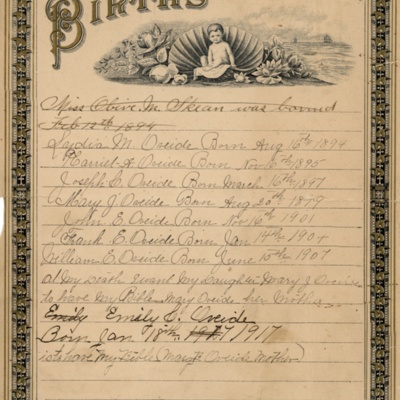 BIRTHS
Miss Olive M. Skean was bornd
Feb 12th 1894
Lydia M. Oreide Born Aug 16th 1894
Harriet A Oreide Born Nov 1895
Joseph C. Oreide Born March 16th 1897
Mary J Oreide Born Aug 20th 1899
John E. Oreide Born Nov 16th 1901
Frank E. Oreide Born Jan 14th 1904
William E. Oreide Born June 15th 1907
at My Death I want My Daughter Mary J Oreide
to have My Bible Mary Oreide her Mother
Emily Emily C. Oreide
Born Jan 18th 1917
is to have My Bible Mary Oreide Mother